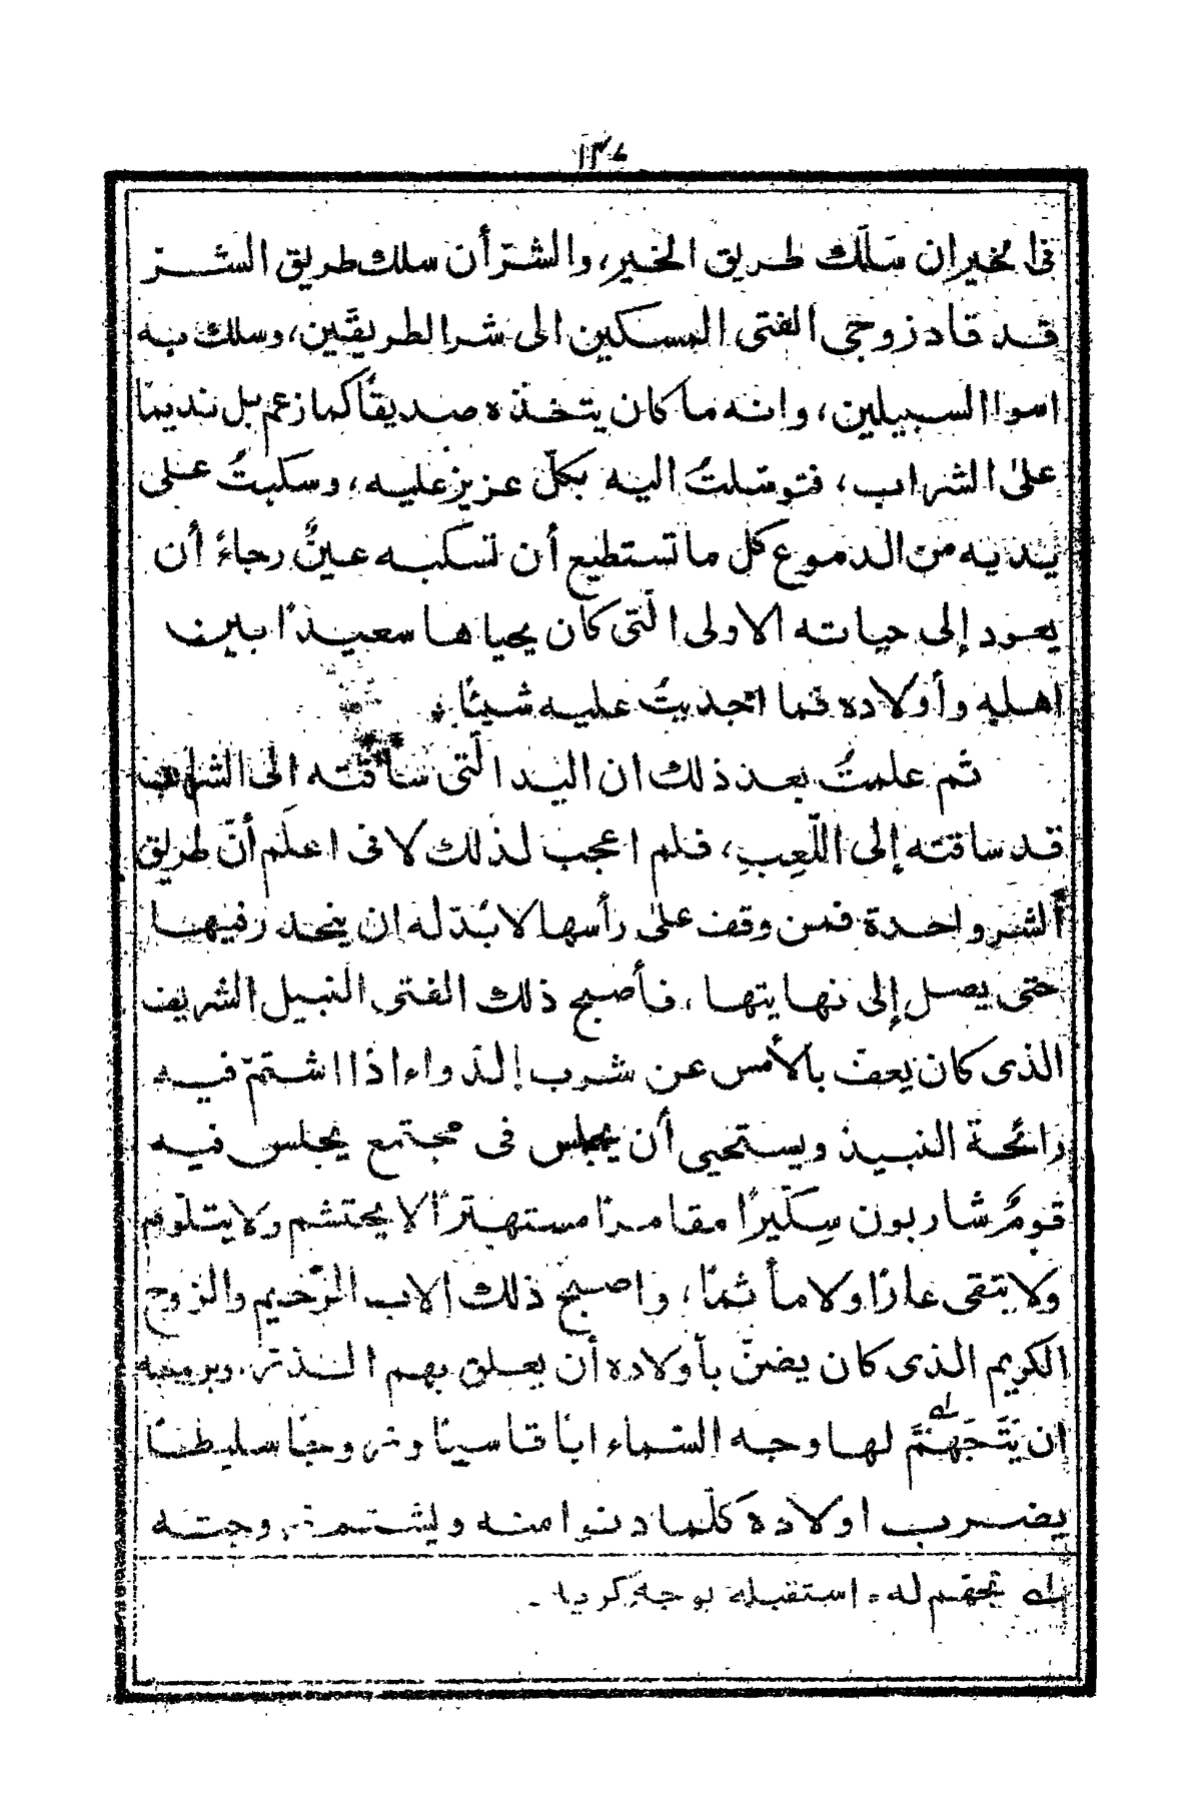 ١٣٠
فى الخيران سَلَك طريق الخير، والشرّ أن سلك طريق الشر
قد قاد زوجى الفتى المسكين الى شر الطريقَين، وسلك به
اسوا السبيلين، وانه ما كان يتخذه صديقًا كما زعم بل نديمًا
على الشراب، فتوسّلتُ اليه بكلّ عزيز عليه، وسكبتُ على
يديه من الدموع كل ما تستطيع أن تسكبه عينٌ رجاءً أن
يعود إلى حياته الاولى الّتى كان يحياها سعيدًا بين
اهله وأولاده فما اجديتُ عليه شيئًا
ثم علمتُ بعد ذلك ان اليد الّتى ساقته الى الشراب
قد ساقته إلى اللّعِبِ، فلم اعجب لذلك لانى اعلَم أنّ طريق
الشر واحدة فمن وقف على رأسها لابُدّ له ان ينحدر فيها
حتى يصل إلى نهايتها، فأصبح ذلك الفتى النبيل الشريف
الذى كان يعفّ بالأمس عن شرب الدواء اذا اشتمّ فيه
رائحة النبيذ ويستحيى أن يجلس فى مجتمع يجلس فيه
قومٌ شاربون سِكّيرًا مقامرًا مستهترًا لا يحتشم ولا يتلوم
ولا يتقى عارًا ولا مأثمًا، واصبح ذلك الاب الرّحيم والزوج
الكريم الذى كان يضنّ بأولاده أن يعلق بهم الذر، وبزوجته
ان يَتَجَهَّمَ لها وجه السّماء ابًا قاسيًا وزوجًا سليطًا
يضرب اولاده كلّما دنوا منه ويشتم زوجته
له تجهّم له = استقبله بوجه كريه ـ